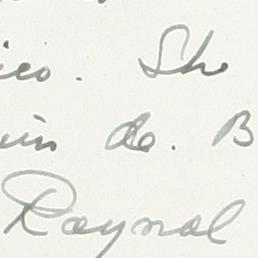 ico. Sho
uin do. B
Raynal